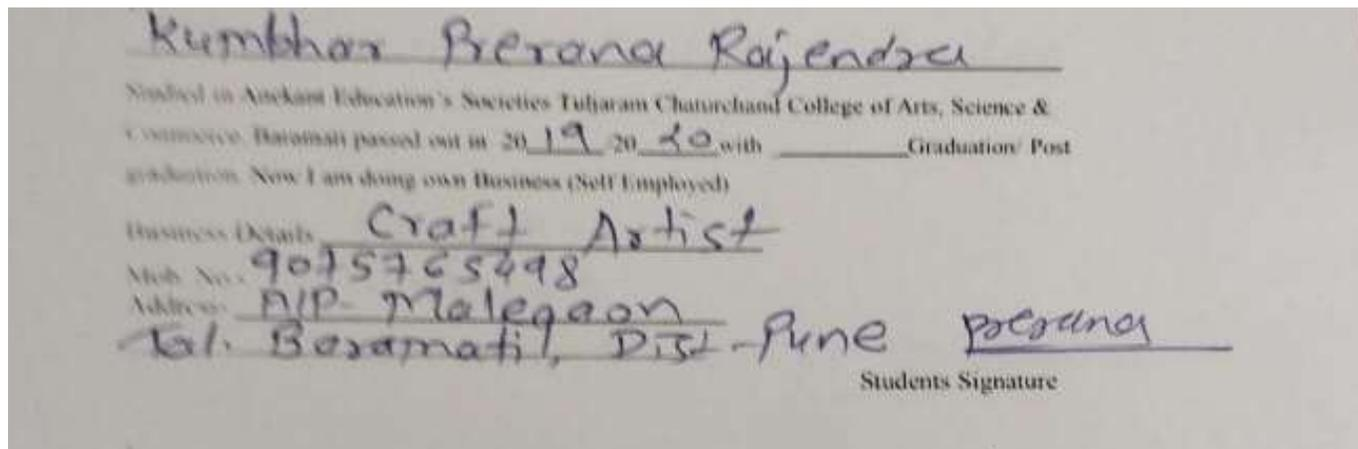 Kumbhar Prerana Rajendra
Studied in Anekant Education's Societies Tuljaram Chaturchand College of Arts, Science &
Commerce, Baramati passed out in 20 19 20 20 with ________ Graduation/ Post
graduation. Now I am doing own Business (Self Employed)
Business Details Craft Artist
Mob No.: 9075765498
Address: A/P- Malegaon
tal. Baramati, Dist-Pune prerana
Students Signature